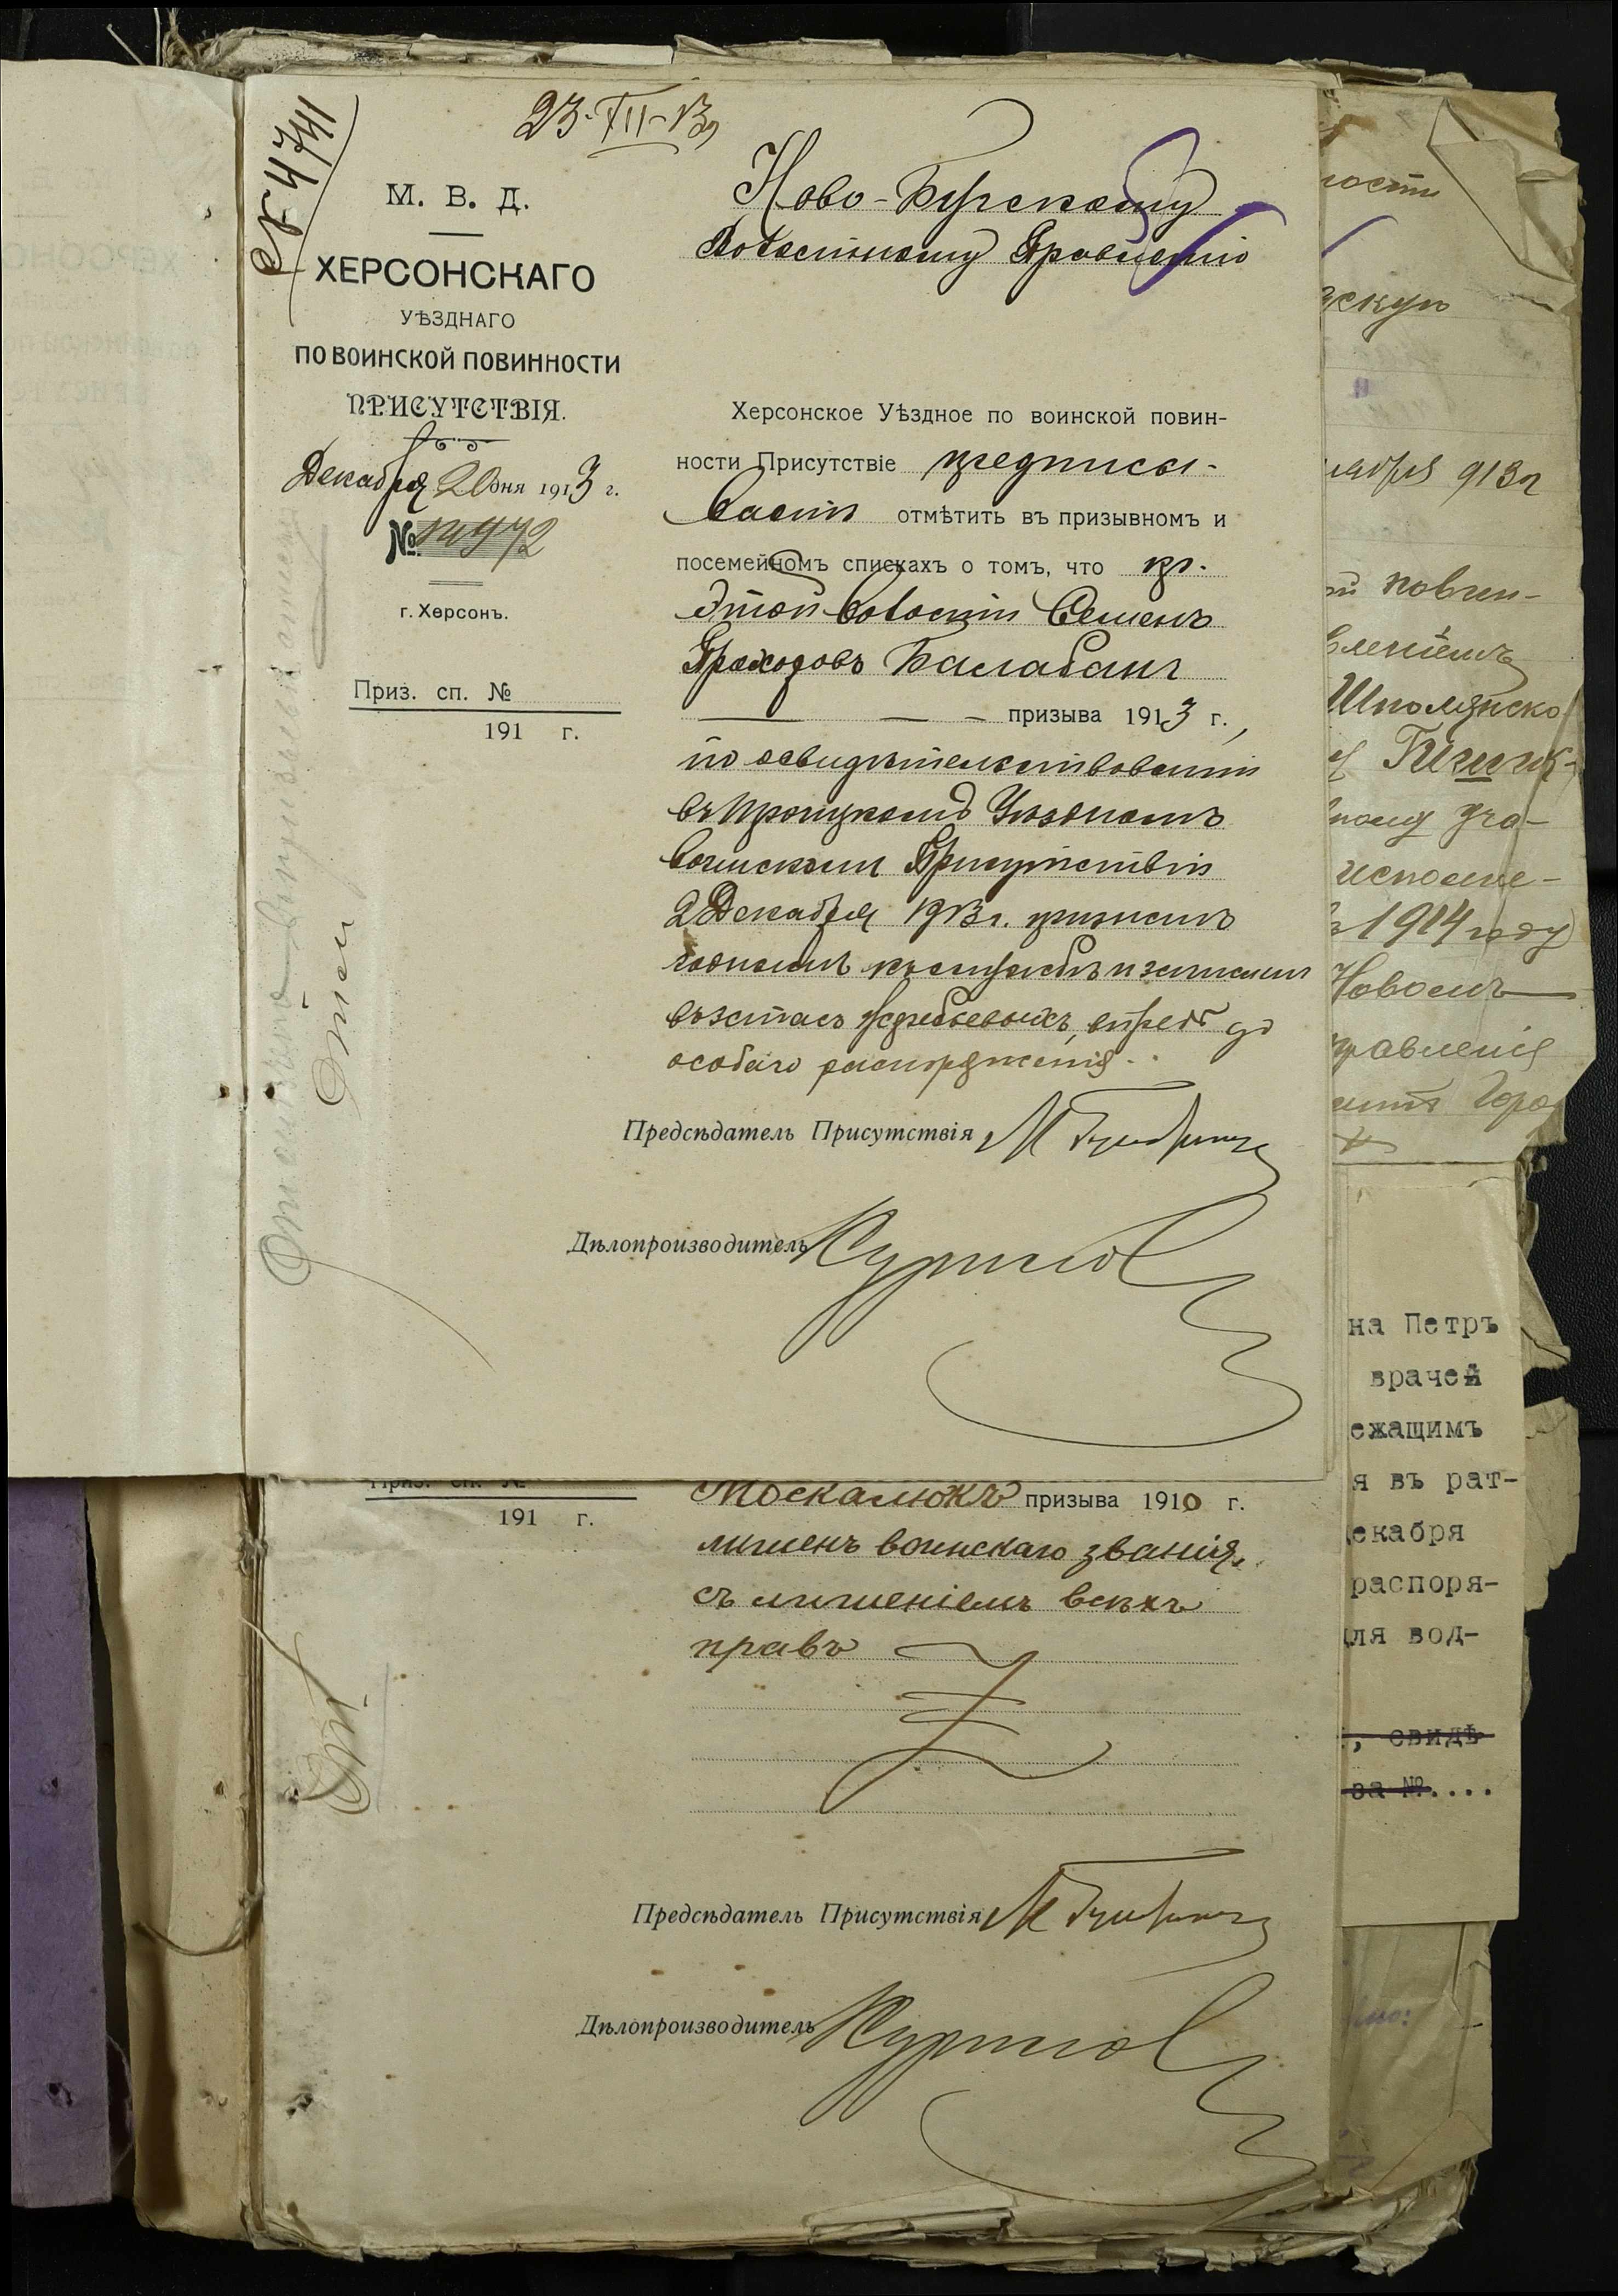 № 4741
23-XII-13 г
М. В. Д.
ХЕРСОНСКАГО
УѢЗДНАГО
ПО ВОИНСКОЙ ПОВИННОСТИ
ПРИСУТСТВІЯ.
Декабря 20 дня 1913 г.
№
г. Херсонъ.
Приз. сп. №
191 г.
Ново-Бугскому
Волостному Правленію
Херсонское Уѣздное по воинской повин-
ности Присутствіе предписы-
ваетъ отмѣтить въ призывномъ и
посемейномъ спискахъ о томъ, что кр.
этой волости Семенъ
Балабанъ
призыва 1913 г.,
по освидѣтельствованіи
въ Уѣздномъ
воинскомъ Присутствіи
2 Декабря 1913 г. признанъ
годнымъ къ службѣ и зачисленъ
жребьевыхъ, впредь до
особаго распоряженія.
Предсѣдатель Присутствія
Дѣлопроизводитель
Приз. сп. №
191 г.
Москалюкъ призыва 1910 г.
лишенъ воинскаго званія,
съ лишеніемъ всѣхъ
правъ
Предсѣдатель Присутствія
Дѣлопроизводитель
ности
913 г
повин-
вленіемъ
Шполянско
ному уча-
исполне-
1914 году
Новомъ
правленія
Горо
на Петръ
врачей
ежащимъ
я въ рат-
екабря
распоря-
ля вод-
, свидѣ-
за №....